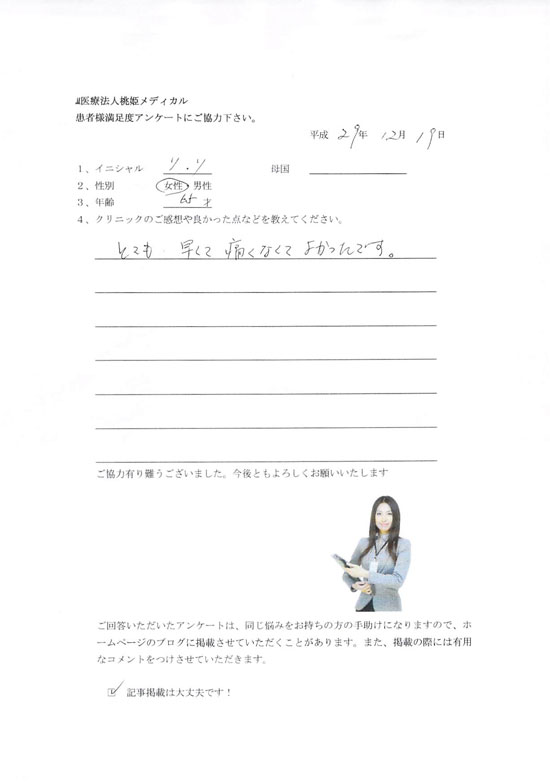 医療法人桃姫メディカル
患者様満足度アンケートにご協力下さい。
平成 29年 12月 19日
1、イニシャル リ.リ 母国
2、性別 女性・男性
3、年齢 65才
4、クリニックのご感想や良かった点などを教えてください。
とても 早くて 痛くなくて よかったです。
ご協力有り難うございました。今後ともよろしくお願いいたします
ご回答いただいたアンケートは、同じ悩みをお持ちの方の手助けになりますので、ホ
ームページのブログに掲載させていただくことがあります。また、掲載の際には有用
なコメントをつけさせていただきます。
記事掲載は大丈夫です！